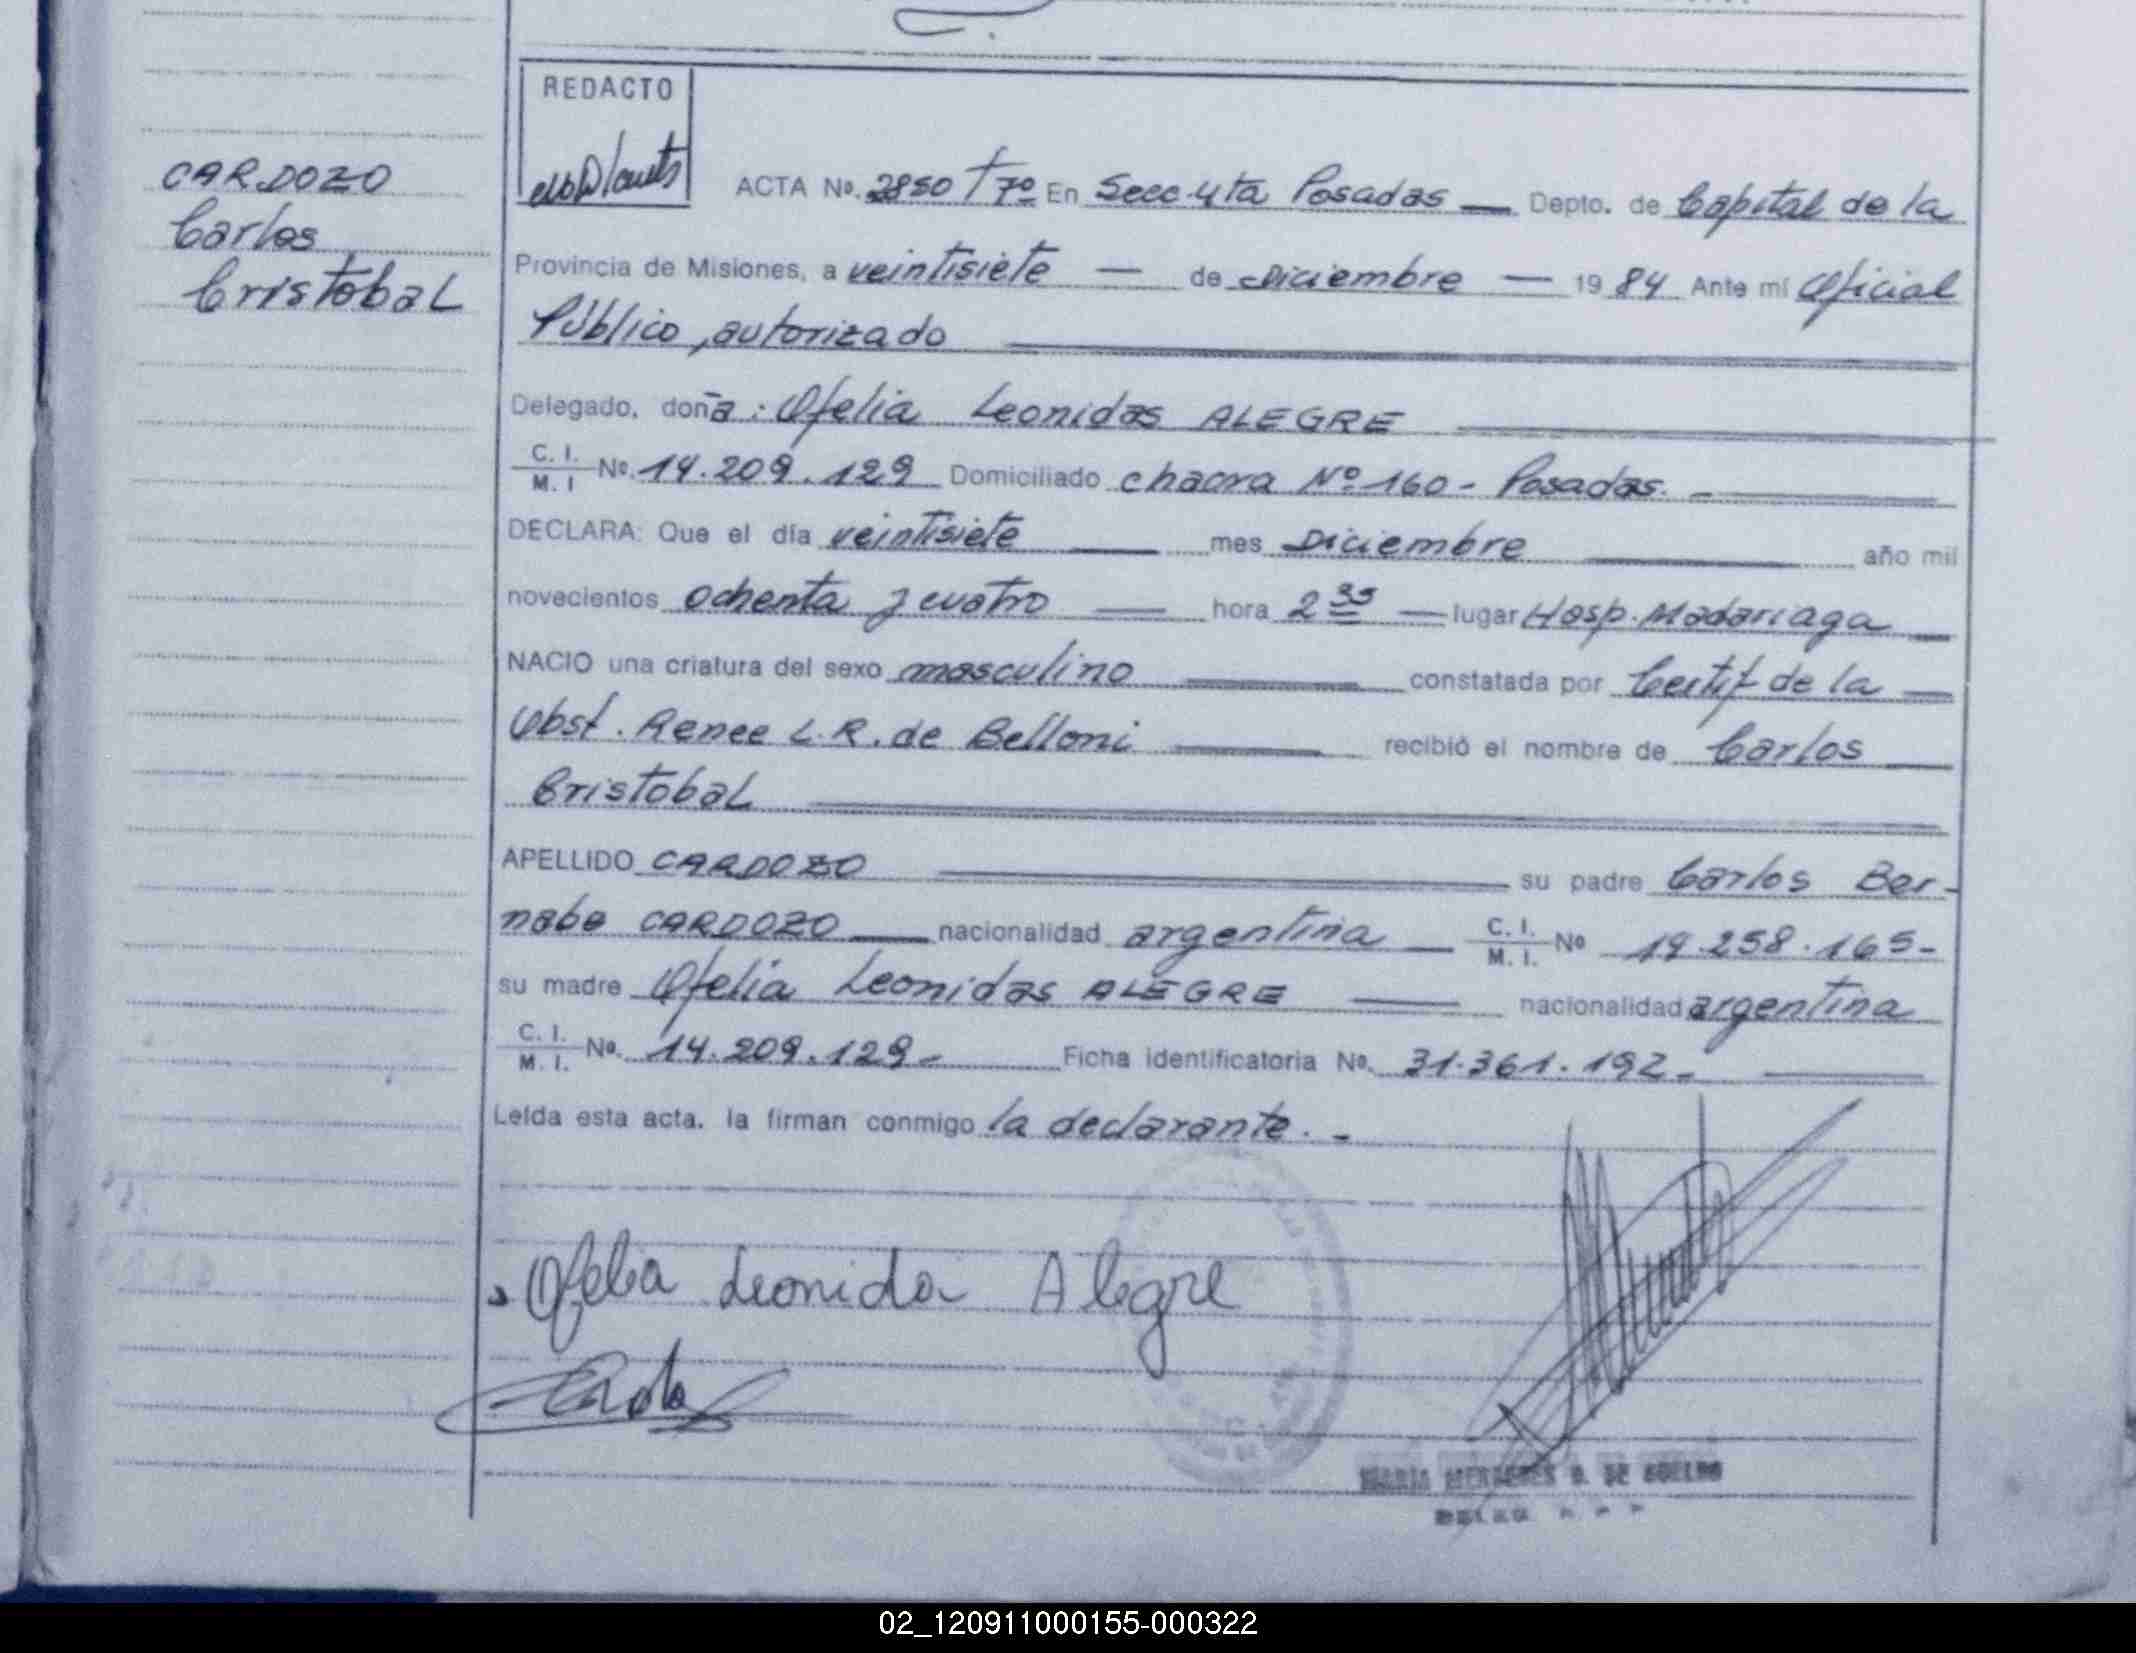 REDACTO
CARDOZO
Carlos
Cristobal
ACTA No. 2850 T 7º En Secc. 4ta Posadas — Depto. de Capital de la
Provincia de Misiones, a veintisiete — de Diciembre — 1984 Ante mí Oficial
Público, autorizado
Delegado, doña: Ofelia Leonidas ALEGRE
C. I. M. I No. 14.209.129 Domiciliado chacra Nº 160 - Posadas. -
DECLARA: Que el día veintisiete — mes Diciembre — año mil
novecientos ochenta y cuatro — hora 2 35 — lugar Hosp. Madariaga —
NACIO una criatura del sexo masculino — constatada por Certif de la —
Obst. Renee L. R. de Belloni — recibió el nombre de Carlos —
Cristobal
APELLIDO CARDOZO — su padre Carlos Ber-
nabe CARDOZO — nacionalidad argentina — C. I. M. I. No 14.258.165-
su madre Ofelia Leonidas ALEGRE — nacionalidad argentina
C. I. M. I. No. 14.209.129- Ficha identificatoria No. 31.361.192.-
Leída esta acta, la firman conmigo la declarante. -
Ofelia Leonida Alegre
MARIA MERCEDES DE COELHO
02_120911000155-000322